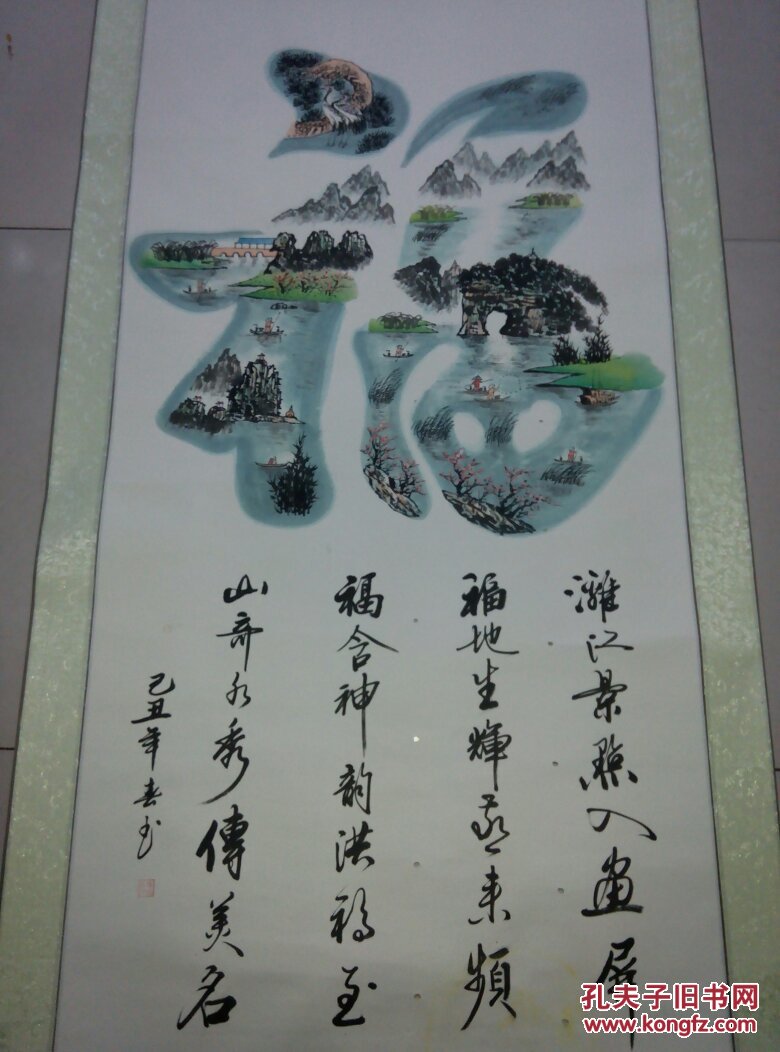 福
灕江景點入畫屏
福地生輝来頻
福含神韵洪福至
山奇水秀傳美名
己丑年春书
孔夫子旧书网
http://www.kongfz.com